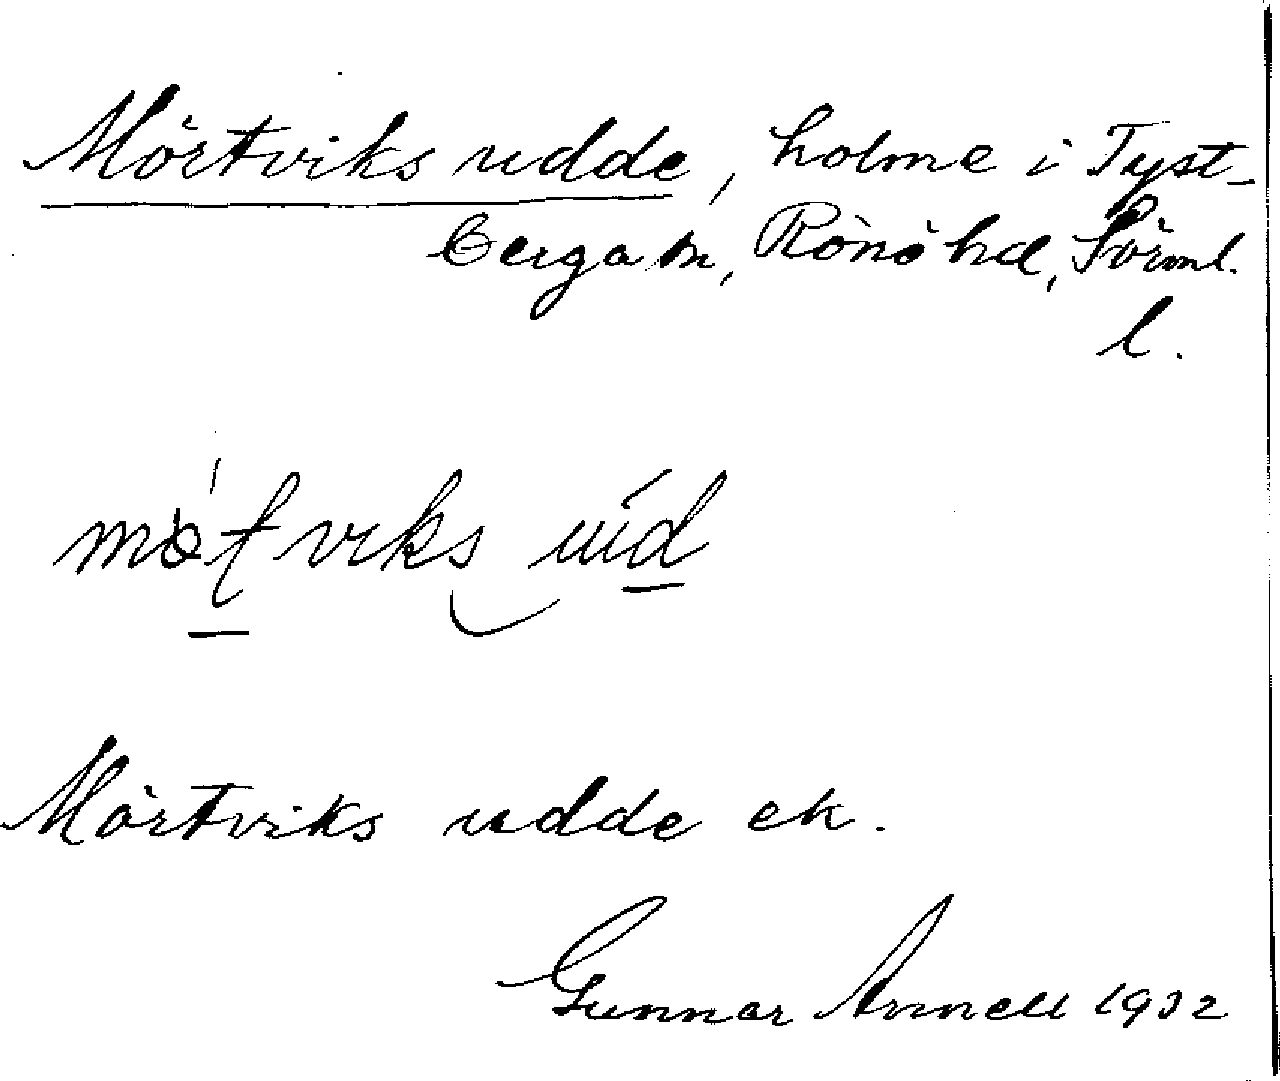 Mörtviks udde, holme i Tyst-
berga sn, Rönö hd, Sörml.
l.
Mörtviks udde ek.
Gunnar Annell 1932